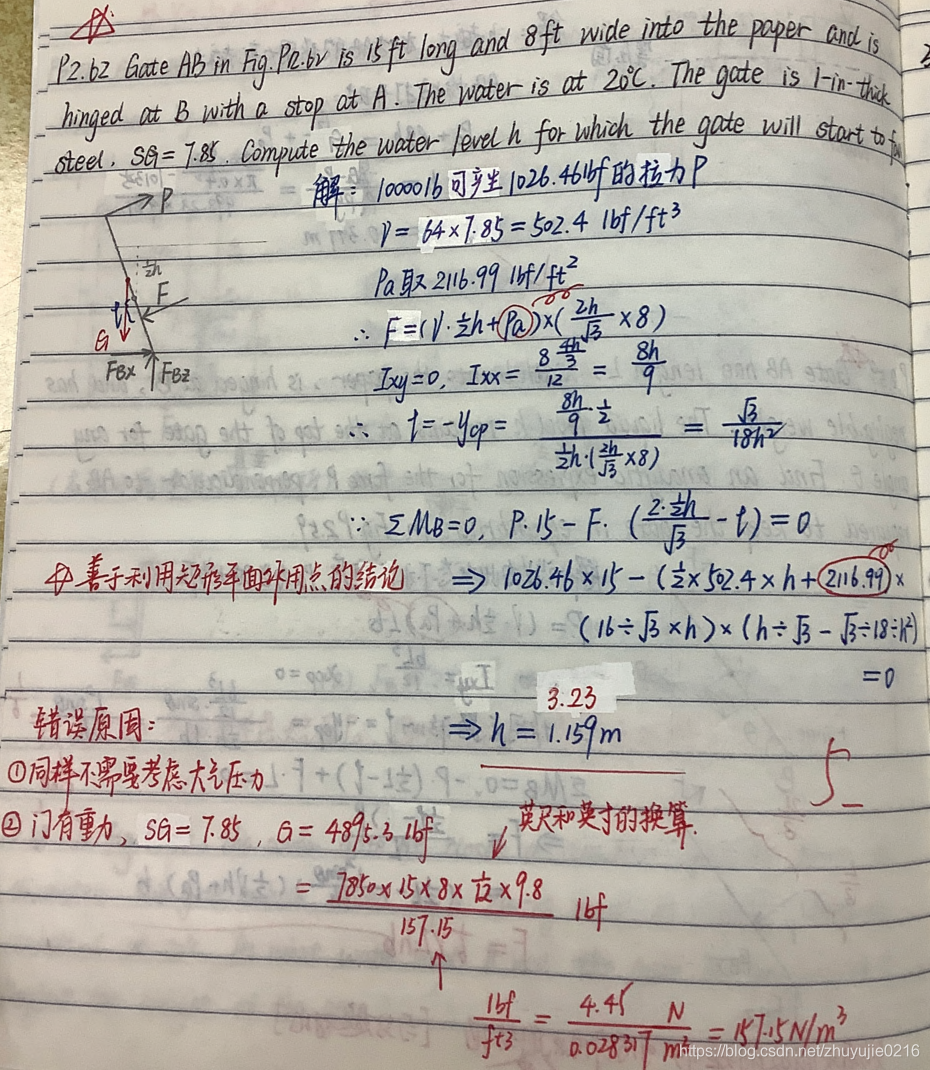 P2.62 Gate AB in Fig.P2.62 is 15ft long and 8ft wide into the paper and is
hinged at B with a stop at A. The water is at 20℃. The gate is 1-in-thick
steel, SG=7.85. Compute the water level h for which the gate will start to
解: 10000lb可产生1026.46lbf的拉力P
P
γ= 64×7.85=502.4 lbf/ft³
½h
Pa取2116.99 lbf/ft²
F
t
G
∴ F=(γ·½h+Pa)×(2h/√3 ×8)
FBX FBZ
Ixy=0, Ixx= 8 4h/3 / 12 = 8h/9
∴ t=-ycp= 8h/9·½ / ½h·(2h/√3×8) = √3/18h²
∵ ΣMB=0, P·15-F·(2·½h/√3 -t)=0
善于利用矩形平面作用点的结论
⇒ 1026.46×15-(½×502.4×h+2116.99)×
(16÷√3×h)×(h÷√3-√3÷18÷h²)
=0
3.23
⇒ h=1.159m
错误原因:
①同样不需要考虑大气压力
②门有重力, SG=7.85, G=4895.3 lbf
英尺和英寸的换算.
= 7850×15×8×1/12×9.8 / 157.15 lbf
↑
lbf/ft3 = 4.45 N / 0.028317 m³ = 157.15N/m³
https://blog.csdn.net/zhuyujie0216